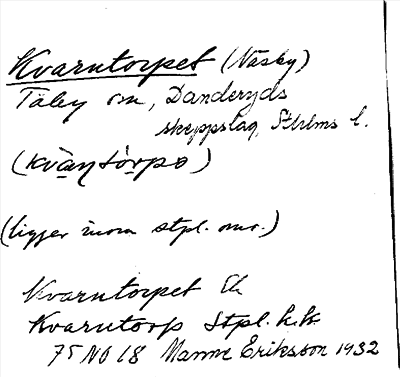 Kvarntorpet (Näsby)
Täby sn, Danderyds
skeppslag, Sthlms l.
(kvà̱ṇtòrpə)
(ligger inom stpl. omr.)
Kvarntorpet Ek
Kvarntorp Stpl. h.k.
75 NO 18 Manne Eriksson 1932